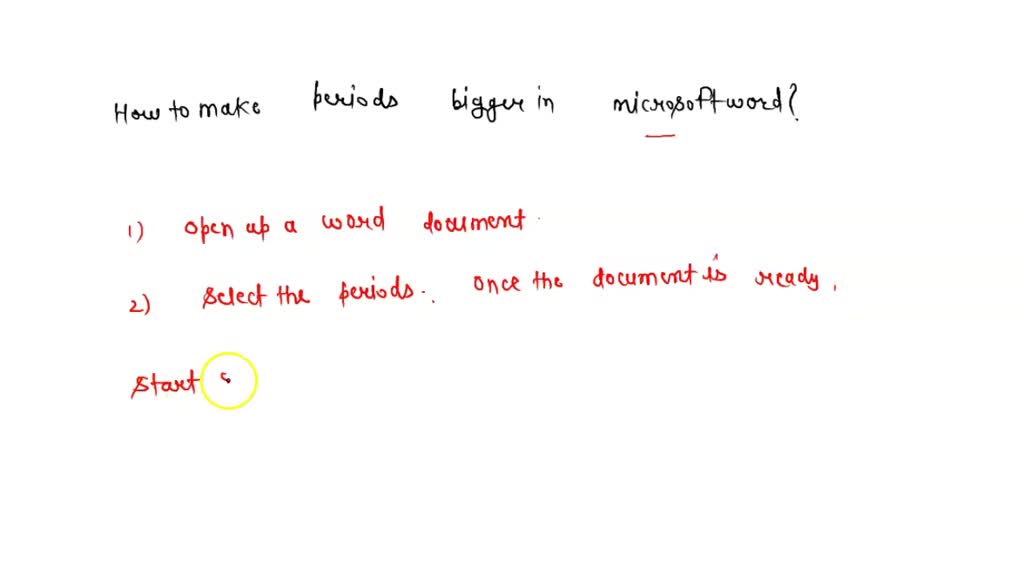 How to make periods bigger in microsoftword?
1) open up a word document.
2) select the periods. once the document is ready,
start s